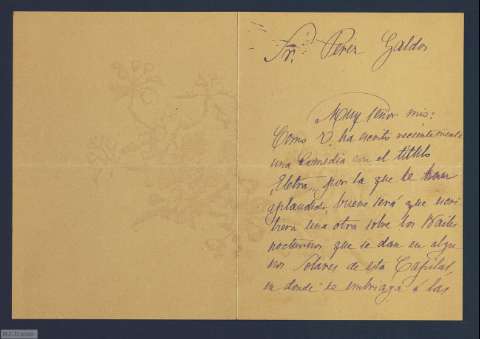 Sr. Perez Galdos
Muy Señor mio:
Como V. ha escrito recientemente
una Comedia con el titulo
Eletra, por la que le han
aplaudido, bueno será que escri
biera una otra sobre los Bailes
nocturnos que se dan en algu
nos Solares de esta Capital,
en donde se embriaga a las